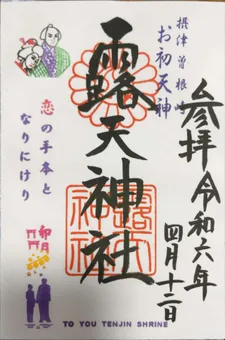 摂津曽根崎
お初天神
参拝
令和六年
四月十二日
露天神社
恋の手本と
なりにけり
卯月
TO YOU TENJIN SHRINE